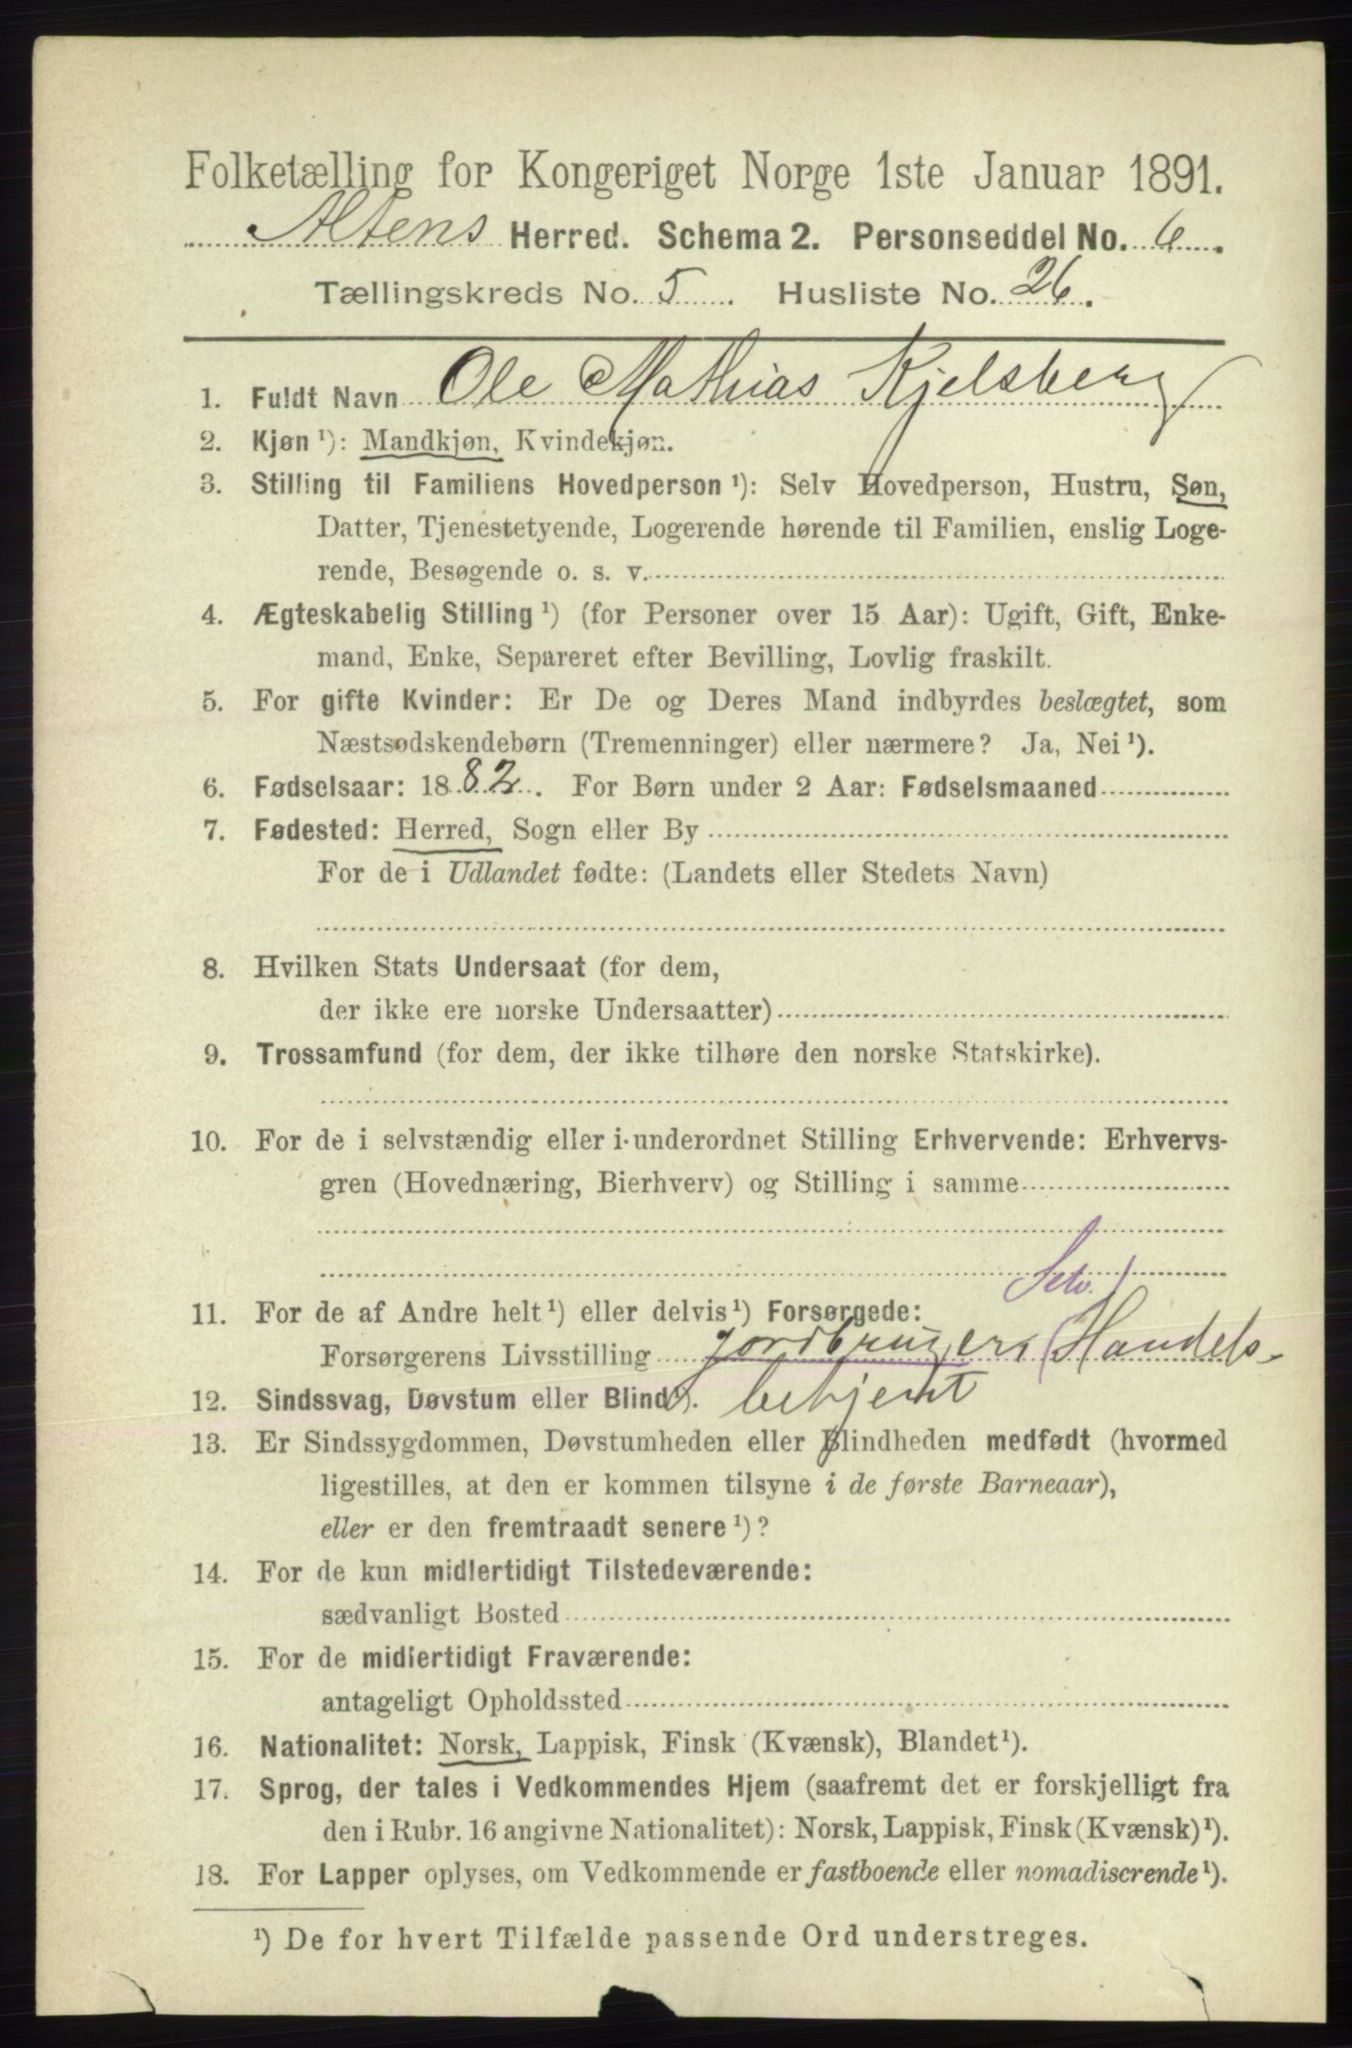 Folketælling for Kongeriget Norge 1ste Januar 1891.
Altens Herred. Schema 2. Personseddel No. 6.
Tællingskreds No. 5. Husliste No. 26.
1. Fuldt Navn Ole Mathias Kjelsberg
2. Kjøn ¹): Mandkjøn, Kvindekjøn.
3. Stilling til Familiens Hovedperson ¹): Selv Hovedperson, Hustru, Søn,
Datter, Tjenestetyende, Logerende hørende til Familien, enslig Loge-
rende, Besøgende o. s. v.
4. Ægteskabelig Stilling ¹) (for Personer over 15 Aar): Ugift, Gift, Enke-
mand, Enke, Separeret efter Bevilling, Lovlig fraskilt.
5. For gifte Kvinder: Er De og Deres Mand indbyrdes beslægtet, som
Næstsødskendebørn (Tremenninger) eller nærmere? Ja, Nei ¹).
6. Fødselsaar: 1882. For Børn under 2 Aar: Fødselsmaaned
7. Fødested: Herred, Sogn eller By
For de i Udlandet fødte: (Landets eller Stedets Navn)
8. Hvilken Stats Undersaat (for dem,
der ikke ere norske Undersaatter)
9. Trossamfund (for dem, der ikke tilhøre den norske Statskirke).
10. For de i selvstændig eller i underordnet Stilling Erhvervende: Erhvervs-
gren (Hovednæring, Bierhverv) og Stilling i samme
Selv.
11. For de af Andre helt ¹) eller delvis ¹) Forsørgede:
Forsørgerens Livsstilling Jordbruger, Handels-
12. Sindssvag, Døvstum eller Blind ¹). betjent
13. Er Sindssygdommen, Døvstumheden eller Blindheden medfødt (hvormed
ligestilles, at den er kommen tilsyne i de første Barneaar),
eller er den fremtraadt senere ¹)?
14. For de kun midlertidigt Tilstedeværende:
sædvanligt Bosted
15. For de midlertidigt Fraværende:
antageligt Opholdssted
16. Nationalitet: Norsk, Lappisk, Finsk (Kvænsk), Blandet ¹).
17. Sprog, der tales i Vedkommendes Hjem (saafremt det er forskjelligt fra
den i Rubr. 16 angivne Nationalitet): Norsk, Lappisk, Finsk (Kvænsk) ¹).
18. For Lapper oplyses, om Vedkommende er fastboende eller nomadiserende ¹).
¹) De for hvert Tilfælde passende Ord understreges.